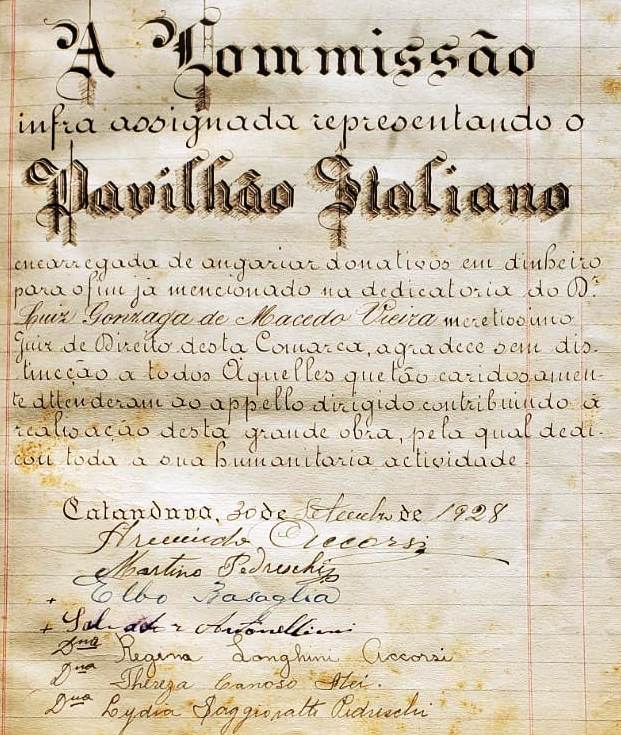 A Commissão
infra assignada representando o
Pavilhão Italiano
encarregada de angariar donativos em dinheiro
para o fim já mencionado na dedicatoria do Dr.
Luiz Gonzaga de Macedo Vieira meretissimo
Juiz de Direito desta Comarca, agradece sem dis-
tincção a todos Aquelles que tão caridosamen-
te attenderam ao appello dirigido contribuindo á
realisação desta grande obra, pela qual dedi-
cou toda a sua humanitaria actividade.
Catanduva, 30 de Setembro de 1928
Armindo Accorsi
Martino Pedreschi
+ Elbo Basaglia
+ Salvador Antonellini
Dna Regina Longhini Accorsi
Dna Thereza Canoso
Dna Lydia Pedreschi